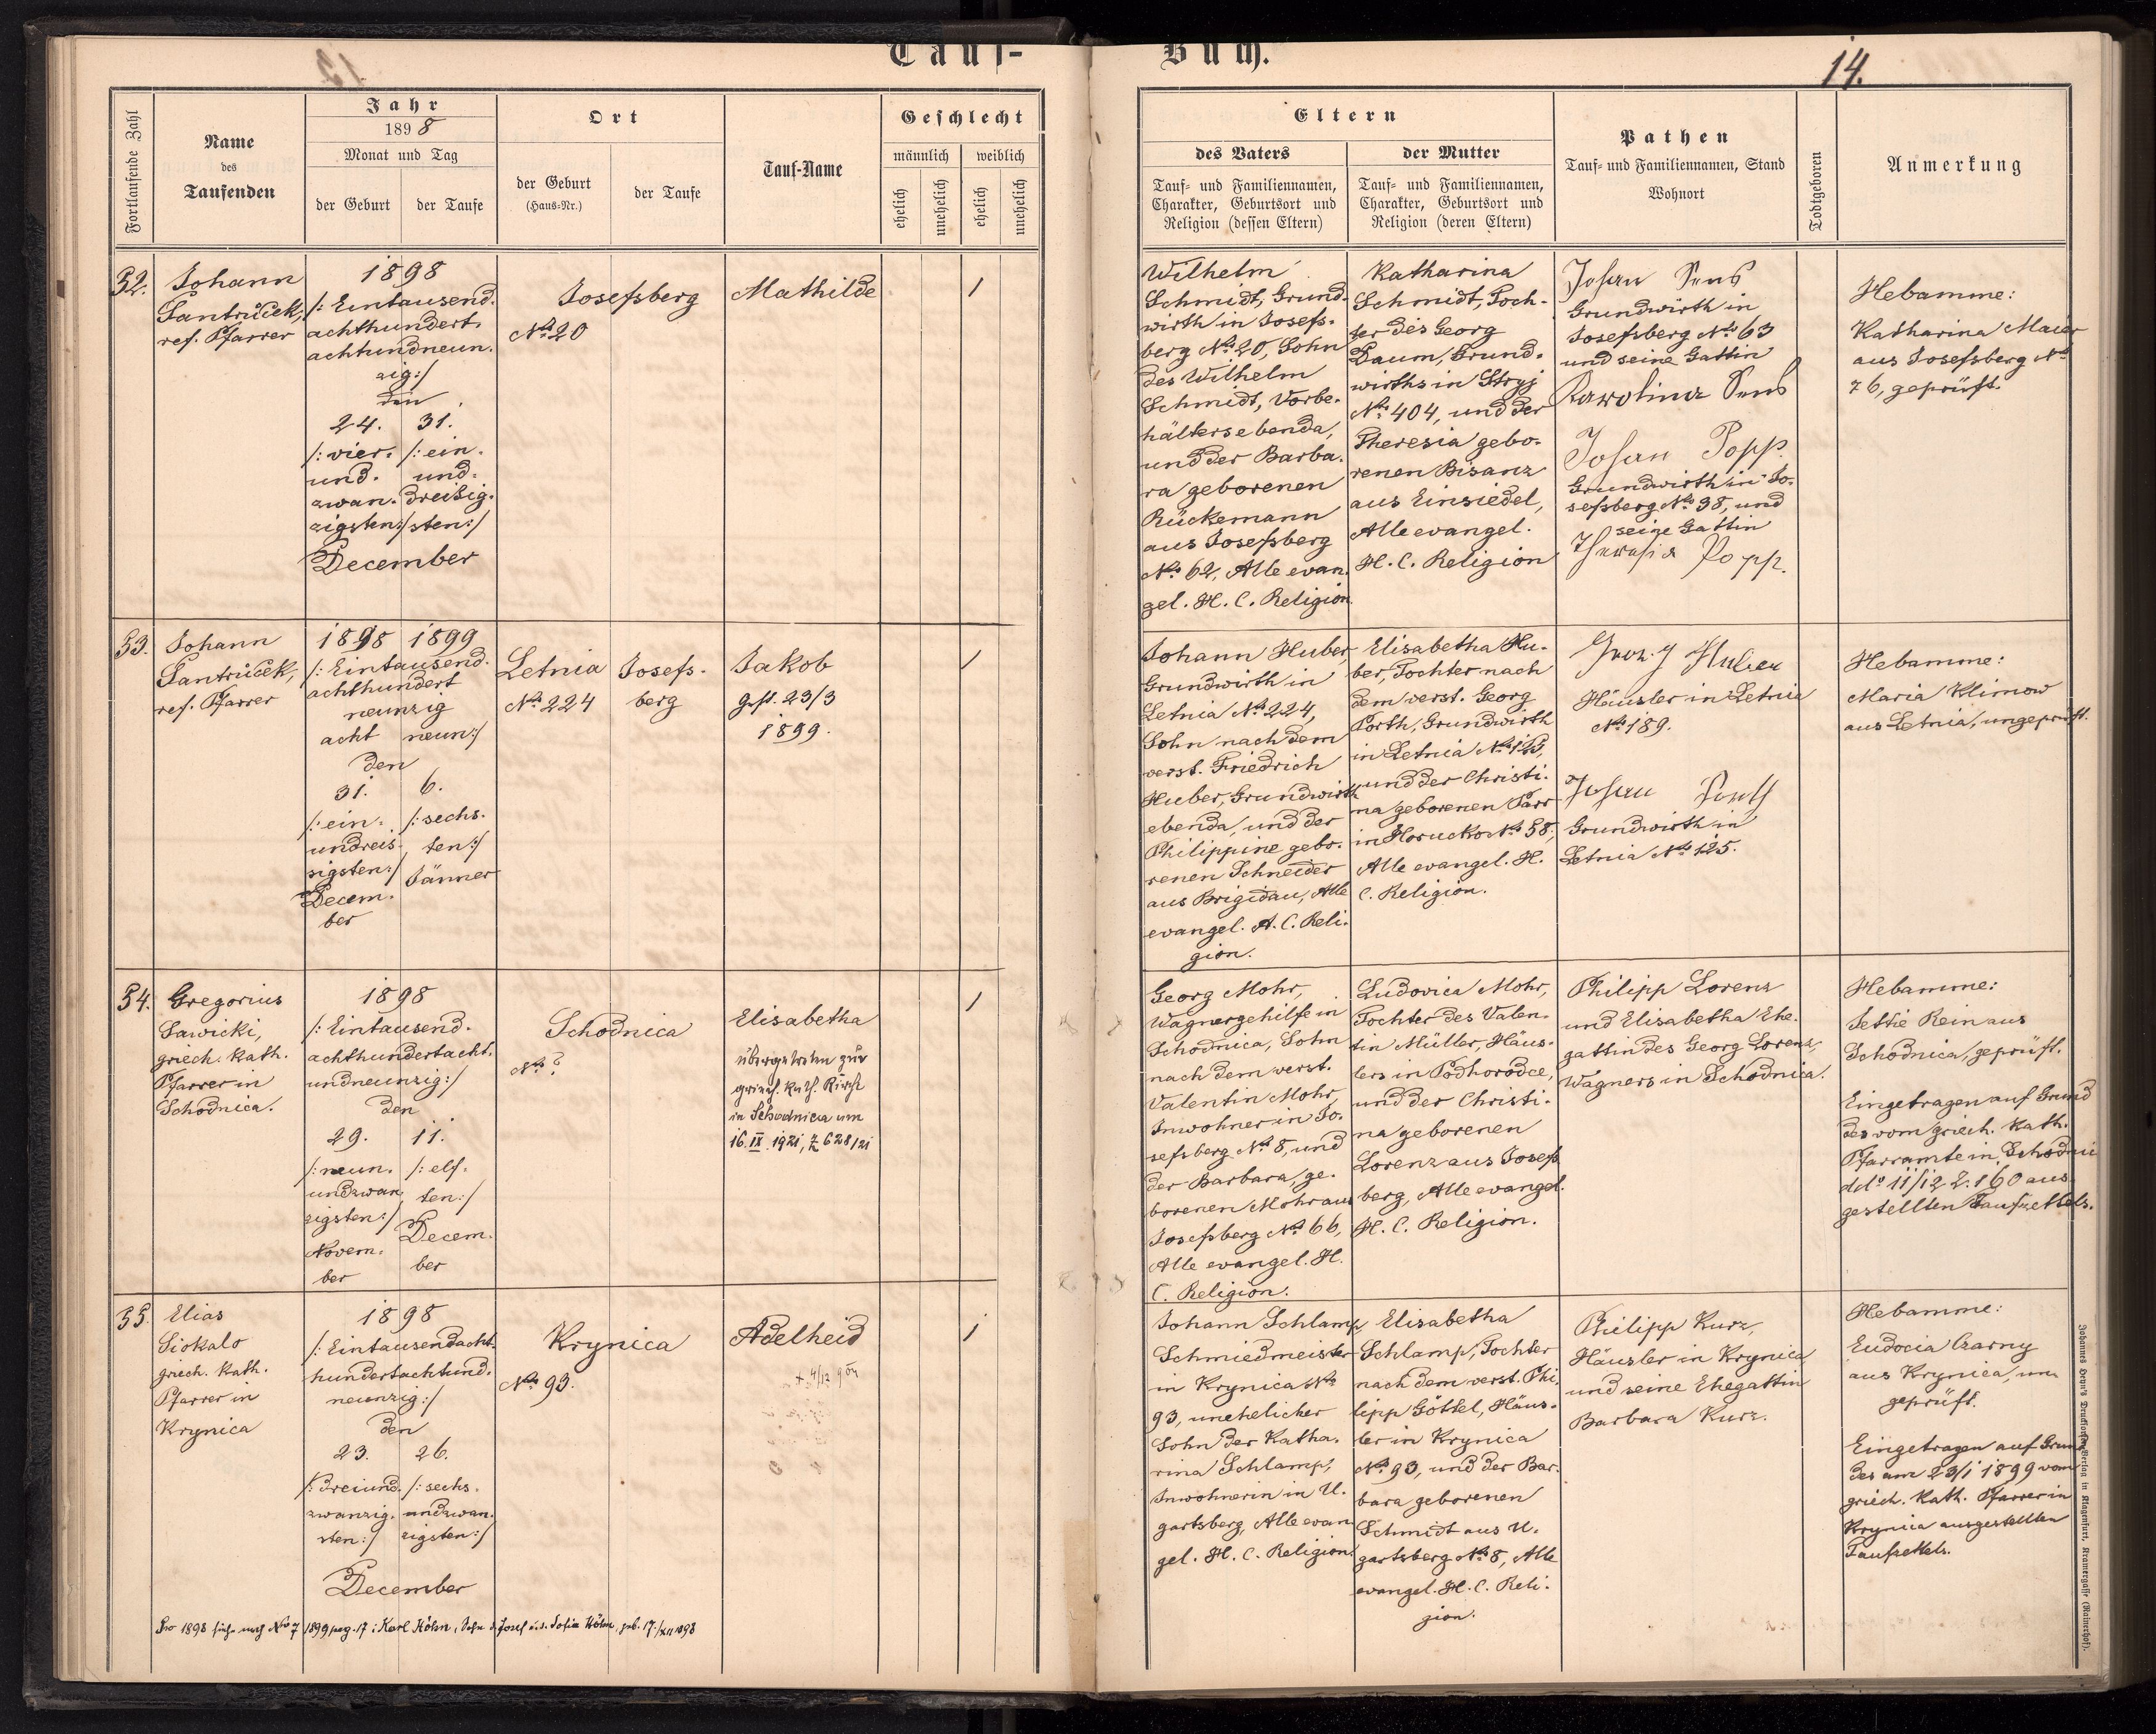 Tauf-
Buch.
14.
Fortlaufende Zahl
Name
des
Taufenden
Jahr
1898
Monat und Tag
der Geburt
der Taufe
Ort
der Geburt
(Haus-Nr.)
der Taufe
Tauf-Name
Geschlecht
männlich
weiblich
ehelich
unehelich
ehelich
unehelich
Eltern
des Vaters
Tauf- und Familiennamen,
Charakter, Geburtsort und
Religion (dessen Eltern)
der Mutter
Tauf- und Familiennamen,
Charakter, Geburtsort und
Religion (deren Eltern)
Pathen
Tauf- und Familiennamen, Stand
Wohnort
Todtgeboren
Anmerkung
52.
Johann
Jantriček,
ref. Pfarrer
1898
/: Eintausend-
achthundert-
achtundneun-
zig:/
den
24. 31.
/: vier- /: ein-
und- und-
zwan- dreißig-
zigsten:/ sten:/
December
Josefsberg
No. 20
Mathilde
1
Wilhelm
Schmidt, Grund-
wirth in Josefs-
berg No. 20, Sohn
des Wilhelm
Schmidt, Vorbe-
hälters ebenda,
und der Barba-
ra geborenen
Rückemann
aus Josefsberg
No. 62, Alle evan-
gel. H. C. Religion.
Katharina
Schmidt, Toch-
ter des Georg
Daum, Grund-
wirths in Stryj
No. 404, und der
Theresia gebo-
renen Bisanz
aus Einsiedel,
Alle evangel.
H. C. Religion
Johan Sens
Grundwirth in
Josefsberg No. 63
und seine Gattin
Karolina Sens
Johan Popp.
Grundwirth in Jo-
sefsberg No. 38, und
seine Gattin
Theresia Popp.
Hebamme:
Katharina Maier
aus Josefsberg No.
76, geprüft.
53.
Johann
Jantriček,
ref. Pfarrer
1898 1899
/: Eintausend-
achthundert
neunzig
acht neun:/
den
31. 6.
/: ein- /: sechs-
undreis- ten:/
sigsten:/ Jänner
Decem-
ber
Letnia
No. 224
Josefs-
berg
Jakob
gest. 23/3
1899.
1
Johann Huber,
Grundwirth in
Letnia No. 224,
Sohn nach dem
verst. Friedrich
Huber, Grundwirth
ebenda, und der
Philippine gebo-
renen Schneider
aus Brigidau, Alle
evangel. A. C. Reli-
gion.
Elisabetha Hu-
ber, Tochter nach
dem verst. Georg
Porth, Grundwirth
in Letnia No. 125,
und der Christi-
na geborenen Parr
in Horucko No. 58,
Alle evangel. H.
C. Religion.
Georg Huber
Häusler in Letnia
No. 189.
Johan Porth
Grundwirth in
Letnia No. 125.
Hebamme:
Maria Klimow
aus Letnia, ungeprüft.
54.
Gregorius
Sawicki,
griech. kath.
Pfarrer in
Schodnica.
1898
/: Eintausend-
achthundertacht-
undneunzig:/
den
29. 11.
/: neun- /: elf-
undzwan- ten:/
zigsten:/ Decem-
Novem- ber
ber
Schodnica
No. ?
Elisabetha
übergetreten zur
griech. kath. Kirche
in Schodnica am
16. IX. 1921, Z 628/21
1
Georg Mohr,
Wagnergehilfe in
Schodnica, Sohn
nach dem verst.
Valentin Mohr,
Inwohner in Jo-
sefsberg No. 8, und
der Barbara, ge-
borenen Mohr aus
Josefsberg No. 66,
Alle evangel. H.
C. Religion.
Ludovica Mohr,
Tochter des Valen-
tin Müller, Häus-
lers in Podhorodce,
und der Christi-
na geborenen
Lorenz aus Josefs
berg, Alle evangel.
H. C. Religion.
Philipp Lorenz
und Elisabetha Ehe-
gattin des Georg Lorenz,
Wagners in Schodnica.
Hebamme:
Jettie Rein aus
Schodnica, geprüft.
Eingetragen auf Grund
des vom griech. kath.
Pfarramte in Schodnic
ddo 11/12 Z. 160 aus-
gestellten Taufzettels.
55.
Elias
Siokalo
griech. kath.
Pfarrer in
Krynica
1898
/: Eintausendacht-
hundertachtund-
neunzig:/
den
23. 26.
/: Dreiund- /: sechs-
zwanzig- undzwan-
sten:/ zigsten:/
December
Krynica
No. 93.
Adelheid
+ 4/12 904
1
Johann Schlamp,
Schmiedmeister
in Krynica No.
93, unehelicher
Sohn der Katha-
rina Schlamp,
Inwohnerin in U-
gartsberg, Alle evan-
gel. H. C. Religion.
Elisabetha
Schlamp, Tochter
nach dem verst. Phi-
lipp Göttel, Häus-
ler in Krynica
No. 93, und der Bar-
bara geborenen
Schmidt aus U-
gartsberg No. 8, Alle
evangel. H. C. Reli-
gion.
Philipp Kurz,
Häusler in Krynica
und seine Ehegattin
Barbara Kurz.
Hebamme:
Eudocia Czarny
aus Krynica, un-
geprüft.
Eingetragen auf Grund
des am 23/1 1899 vom
griech. kath. Pfarrer in
Krynica ausgestellten
Taufzettels.
Pro 1898 siehe auch No 7 1899 pag. 17: Karl Köhn, Sohn d. Josef u. d. Sofia Köhn, geb. 17./XII 1898
Johannes Heyn's Druckerei-Verlag in Klagenfurt, Kramergasse (Rainerhof).